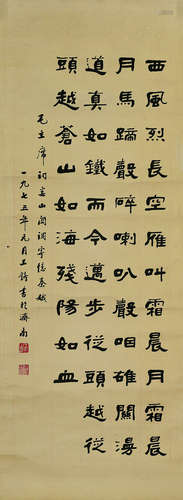 西風烈長空雁叫霜晨月霜晨
月馬蹄聲碎喇叭聲咽雄關漫
道真如鐵而今邁步從頭越從
頭越蒼山如海殘陽如血
毛主席詞婁山關調寄憶秦娥
一九七五年元月書於濟南